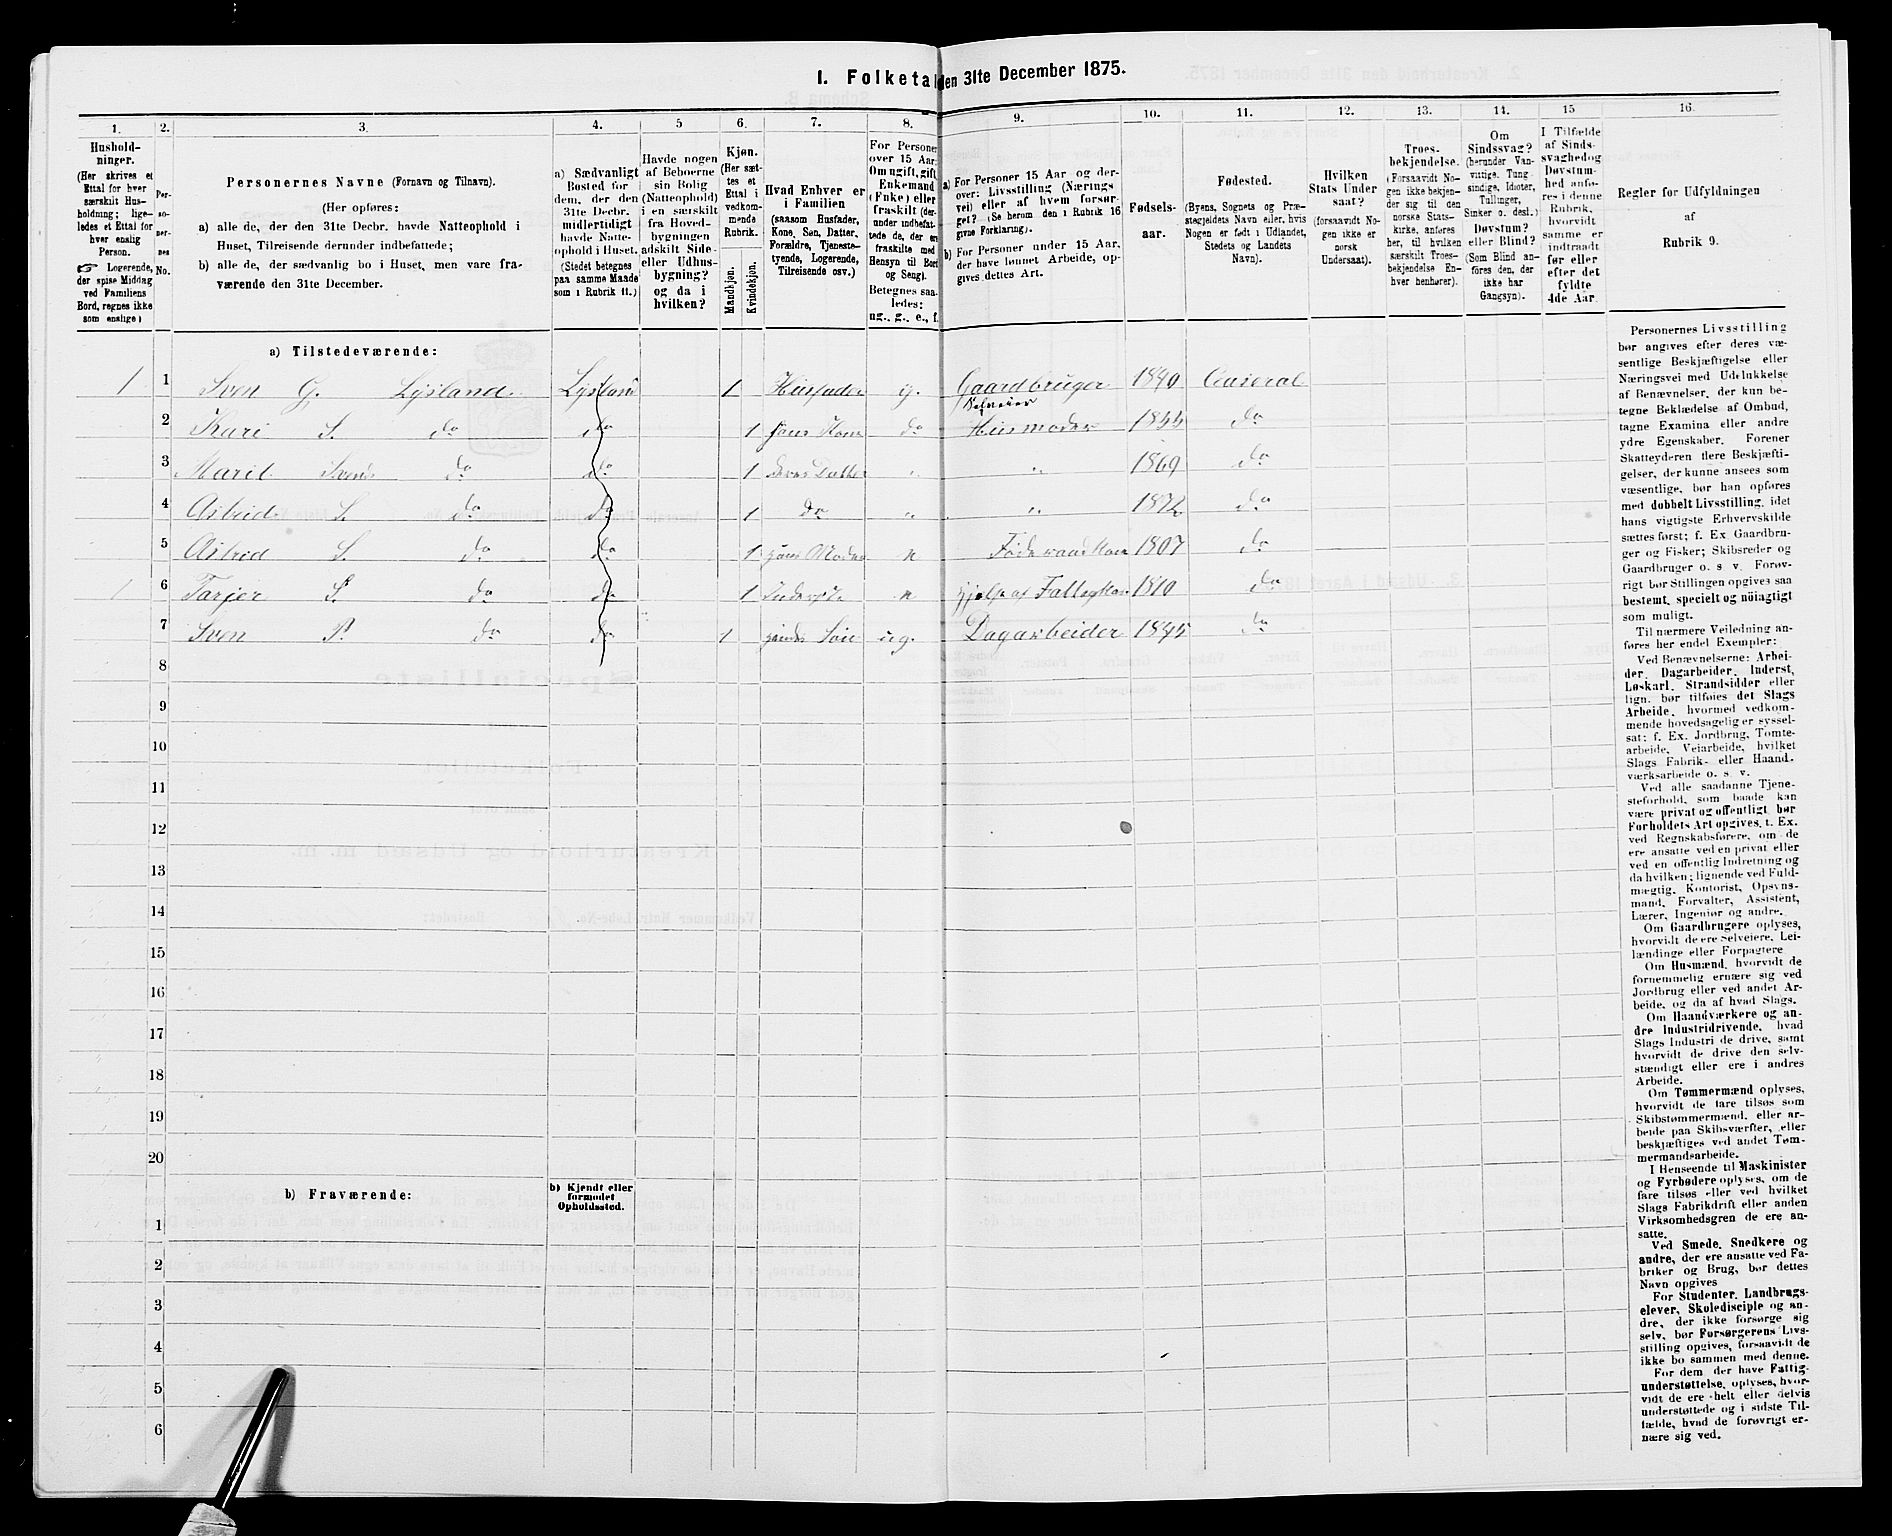 I. Folketal den 31te December 1875.
1. 2. 3. 4. 5 6. 7. 8. 9. 10. 11. 12. 13. 14. 15 16.
Hushold-
ninger.
(Her skrives et
Ettal for hver
særskilt Hus-
holdning; lige-
ledes et Ettal for
hver enslig
Person.
☞ Logerende,
der spise Middag
ved Familiens
Bord, regnes ikke
som enslige)
Per-
so-
ner-
nes
No.
Personernes Navne (Fornavn og Tilnavn).
(Her opføres:
a) alle de, der den 31te Decbr. havde Natteophold i
Huset, Tilreisende derunder indbefattede;
b) alle de, der sædvanlig bo i Huset, men vare fra-
værende den 31te December.
a) Sædvanligt
Bosted for
dem, der den
31te Decbr.
midlertidigt
havde Natte-
ophold i Huset.
(Stedet betegnes
paa samme Maade
som i Rubrik 11.)
Havde nogen
af Beboerne
sin Bolig
(Natteophold)
i en særskilt
fra Hoved-
bygningen
adskilt Side-
eller Udhus-
bygning?
og da i
hvilken?
Kjøn.
(Her sæt-
tes et
Ettal i
vedkom-
mende
Rubrik.
Mandkjøn.
Kvindekjøn.
Hvad Enhver er
i Familien
(saasom Husfader,
Kone, Søn, Datter,
Forældre, Tjeneste-
tyende, Logerende,
Tilreisende osv.)
For Personer
over 15 Aar:
Om ugift, gift,
Enkemand
(Enke) eller
fraskilt (der-
under indbefat-
tede de, der ere
fraskilte med
Hensyn til Bord
og Seng).
Betegnes saa-
ledes:
ug., g., e., f.
a) For Personer 15 Aar og der-
over: Livsstilling (Nærings-
vei) eller af hvem forsør-
get? (Se herom den i Rubrik 16
givne Forklaring).
b) For Personer under 15 Aar,
der have lønnet Arbeide, op-
gives dettes Art.
Fødsels-
aar.
Fødested.
(Byens, Sognets og Præ-
stegjeldets Navn eller, hvis
Nogen er født i Udlandet,
Stedets og Landets
Navn).
Hvilken
Stats Under
saat?
(forsaavidt No-
gen ikke er
norsk
Undersaat).
Troes-
bekjendelse.
(Forsaavidt No-
gen ikke bekjen-
der sig til den
norske Stats-
kirke, anføres
her, til hvilken
særskilt Troes-
bekjendelse En-
hver henhører).
Om
Sindssvag?
(herunder Van-
vittige, Tung-
sindige, Idioter,
Tullinger,
Sinker o. desl.)
Døvstum?
eller Blind?
(Som Blind an-
føres den, der
ikke har
Gangsyn).
I Tilfælde
af Sinds-
svaghed og
Døvstum-
hed anfø-
res i denne
Rubrik,
hvorvidt
samme er
indtraadt
før eller
efter det
fyldte
4de Aar.
Regler for Udfyldningen
af
Rubrik 9.
a) Tilstedeværende:
1 1 Sven G. Lysland Lysland 1 Husfader g. Gaardbruger Selveier 1840 Aaseral
2 Kari S. do do 1 hans Kone do Husmoder 1844 do
3 Marit Svens do do 1 deres Datter " " 1869 do
4 Asbrid S. do do 1 do " " 1872 do
5 Asbrid S. do do 1 hans Moder Føderaadskone 1807 do
1 6 Tarjer S. do do 1 hjelp af 1810 do
7 Sven P. do do 1 Søn ug. Dagarbeider 1845 do
8
9
10
11
12
13
14
15
16
17
18
19
20
b) Fraværende:
b) Kjendt eller
formodet
Opholdssted.
1
2
3
4
5
6
Personernes Livsstilling
bør angives efter deres væ-
sentlige Beskjæftigelse eller
Næringsvei med Udelukkelse
af Benævnelser, der kun be-
tegne Beklædelse af Ombud,
tagne Examina eller andre
ydre Egenskaber. Forener
Skatteyderen flere Beskjæfti-
gelser, der kunne ansees som
væsentlige, bør han opføres
med dobbelt Livsstilling, idet
hans vigtigste Erhvervskilde
sættes først; f. Ex Gaardbru-
ger og Fisker; Skibsreder og
Gaardbruger o. s. v. Forøv-
rigt bør Stillingen opgives saa
bestemt, specielt og nöiagtigt
som muligt.
Til nærmere Veiledning an-
føres her endel Exempler:
Ved Benævnelserne: Arbei-
der, Dagarbeider, Inderst,
Løskarl, Strandsidder eller
lign. bør tilføies det Slags
Arbeide, hvormed vedkom-
mende hovedsagelig er syssel-
sat: f. Ex. Jordbrug, Tomte-
arbeide, Veiarbeide, hvilket
Slags Fabrik- eller Haand-
værksarbeide o. s. v.
Ved alle saadanne Tjene-
steforhold, som baade kan
være privat og offentligt, bør
Forholdets Art opgives, t. Ex.
ved Regnskabsførere, om de
ere ansatte ved en privat eller
ved en offentlig Indretning og
da hvilken; lignende ved Fuld-
mægtig, Kontorist, Opsyns-
mand, Forvalter, Assistent,
Lærer, Ingeniør og andre.
Om Gaardbrugere oplyses,
hvorvidt de ere Selveiere, Lei-
lændinge eller Forpagtere
Om Husmænd, hvorvidt de
fornemmelig ernære sig ved
Jordbrug eller ved andet Ar-
beide, og da af hvad Slags.
Om Haandværkere og an-
dre Industridrivende, hvad
Slags Industri de drive, samt
hvorvidt de drive den selv-
stændigt eller ere i andres
Arbeide.
Om Tømmermænd oplyses,
hvorvidt de fare tilsøs som
Skibstømmermænd, eller ar-
beide paa Skibsværfter, eller
beskjæftiges ved andet Tøm-
mermandsarbeide.
I Henseende til Maskinister
og Fyrbødere oplyses, om de
fare tilsøs eller ved hvilket
Slags Fabrikdrift eller anden
Virksomhedsgren de ere an-
satte.
Ved Smede, Snedkere og
andre, der ere ansatte ved Fa-
briker og Brug, bør dettes
Navn opgives
For Studenter, Landbrugs-
elever, Skoledisciple og an-
dre, der ikke forsørge sig
selv, bør Forsørgerens Livs-
stilling opgives, forsaavidt de
ikke bo sammen med denne.
For dem, der have Fattig-
understøttelse, oplyses, hvor-
vidt de ere helt eller delvis
understøttede og i sidste Til-
fælde, hvad de forøvrigt er-
nære sig ved.